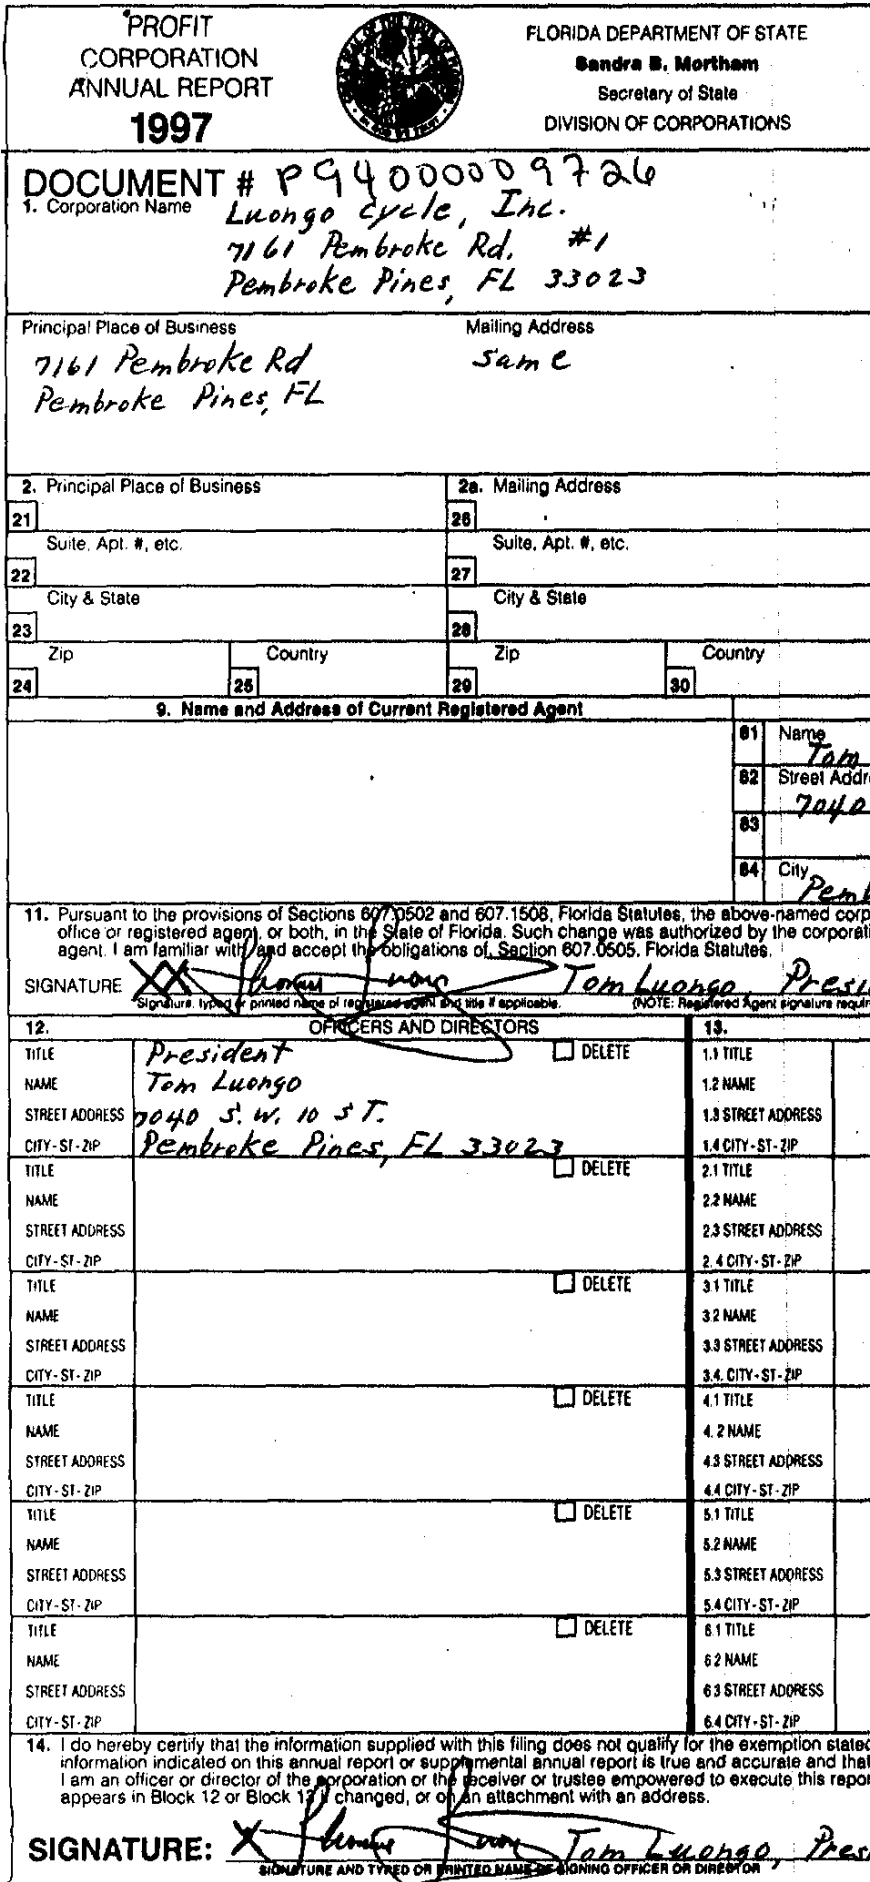 PROFIT
CORPORATION
ANNUAL REPORT
1997
FLORIDA DEPARTMENT OF STATE
Sandra B. Mortham
Secretary of State
DIVISION OF CORPORATIONS
DOCUMENT # P94000009726
1. Corporation Name Luongo Cycle, Inc.
7161 Pembroke Rd. #1
Pembroke Pines, FL 33023
Principal Place of Business
7161 Pembroke Rd
Pembroke Pines, FL
Mailing Address
Same
2. Principal Place of Business
21
Suite, Apt. #, etc.
22
City & State
23
Zip
24
Country
25
2a. Mailing Address
26
Suite, Apt. #, etc.
27
City & State
28
Zip
29
Country
30
9. Name and Address of Current Registered Agent
81 Name
Tom
82 Street Addr
7040
83
84 City
Pemb
11. Pursuant to the provisions of Sections 607.0502 and 607.1508, Florida Statutes, the above-named corp
office or registered agent, or both, in the State of Florida. Such change was authorized by the corporati
agent. I am familiar with, and accept the obligations of, Section 607.0505, Florida Statutes.
SIGNATURE XX Thomas Luongo Tom Luongo, Presi
Signature, typed or printed name of registered agent and title if applicable. (NOTE: Registered Agent signature requir
12. OFFICERS AND DIRECTORS 13.
TITLE President DELETE 1.1 TITLE
NAME Tom Luongo 1.2 NAME
STREET ADDRESS 7040 S.W. 10 ST. 1.3 STREET ADDRESS
CITY-ST-ZIP Pembroke Pines, FL 33023 1.4 CITY-ST-ZIP
TITLE DELETE 2.1 TITLE
NAME 2.2 NAME
STREET ADDRESS 2.3 STREET ADDRESS
CITY-ST-ZIP 2.4 CITY-ST-ZIP
TITLE DELETE 3.1 TITLE
NAME 3.2 NAME
STREET ADDRESS 3.3 STREET ADDRESS
CITY-ST-ZIP 3.4. CITY-ST-ZIP
TITLE DELETE 4.1 TITLE
NAME 4.2 NAME
STREET ADDRESS 4.3 STREET ADDRESS
CITY-ST-ZIP 4.4 CITY-ST-ZIP
TITLE DELETE 5.1 TITLE
NAME 5.2 NAME
STREET ADDRESS 5.3 STREET ADDRESS
CITY-ST-ZIP 5.4 CITY-ST-ZIP
TITLE DELETE 6.1 TITLE
NAME 6.2 NAME
STREET ADDRESS 6.3 STREET ADDRESS
CITY-ST-ZIP 6.4 CITY-ST-ZIP
14. I do hereby certify that the information supplied with this filing does not qualify for the exemption stated
information indicated on this annual report or supplemental annual report is true and accurate and that
I am an officer or director of the corporation or the receiver or trustee empowered to execute this repor
appears in Block 12 or Block 13 if changed, or on an attachment with an address.
SIGNATURE: X Thomas Luongo Tom Luongo, Pres
SIGNATURE AND TYPED OR PRINTED NAME OF SIGNING OFFICER OR DIRECTOR